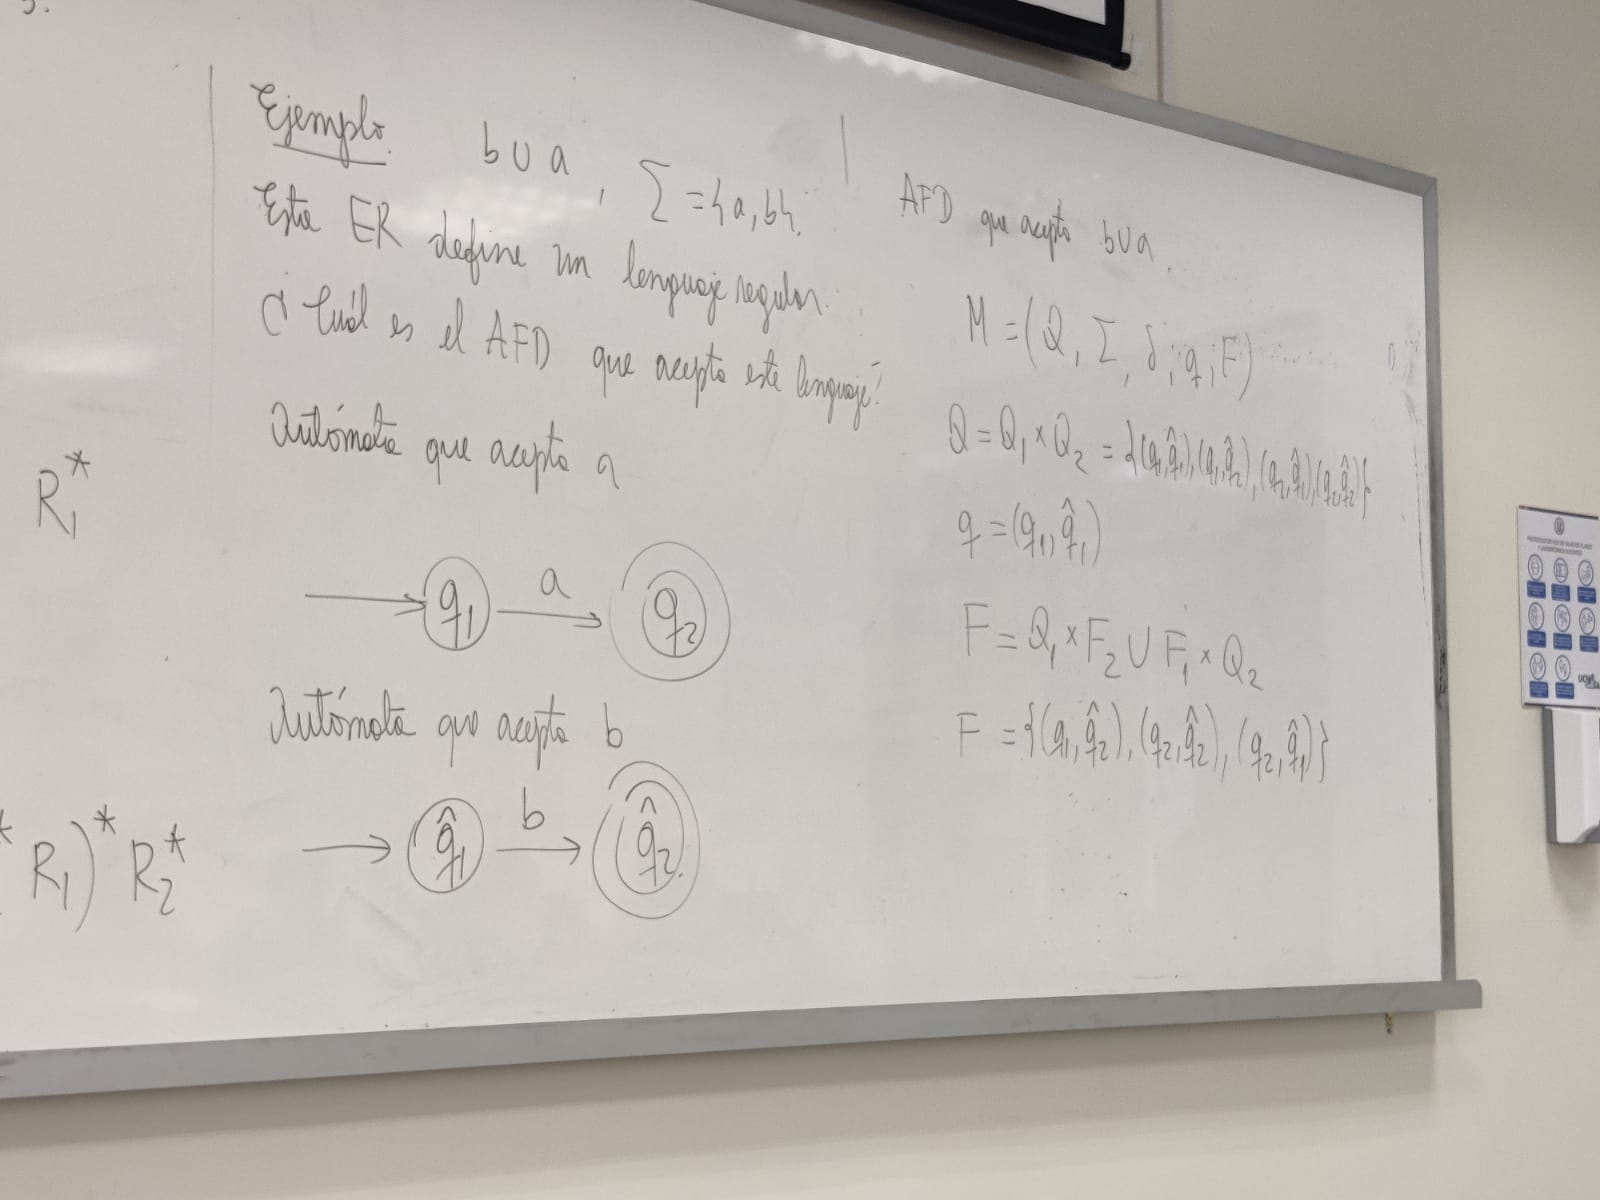 Ejemplo. b ∪ a, Σ = {a, b}.
Esta ER define un lenguaje regular.
¿Cuál es el AFD que acepta este lenguaje?
Autómata que acepta a
q₁ a q₂
Autómata que acepta b
q̂₁ b q̂₂
AFD que acepta b∪a.
M = (Q, Σ, δ, q, F)
Q = Q₁ × Q₂ = {(q₁,q̂₁),(q₁,q̂₂),(q₂,q̂₁),(q₂,q̂₂)}
q = (q₁, q̂₁)
F = Q₁ × F₂ ∪ F₁ × Q₂
F = {(q₁,q̂₂), (q₂,q̂₂), (q₂,q̂₁)}
R₁*
* R₁)* R₂*